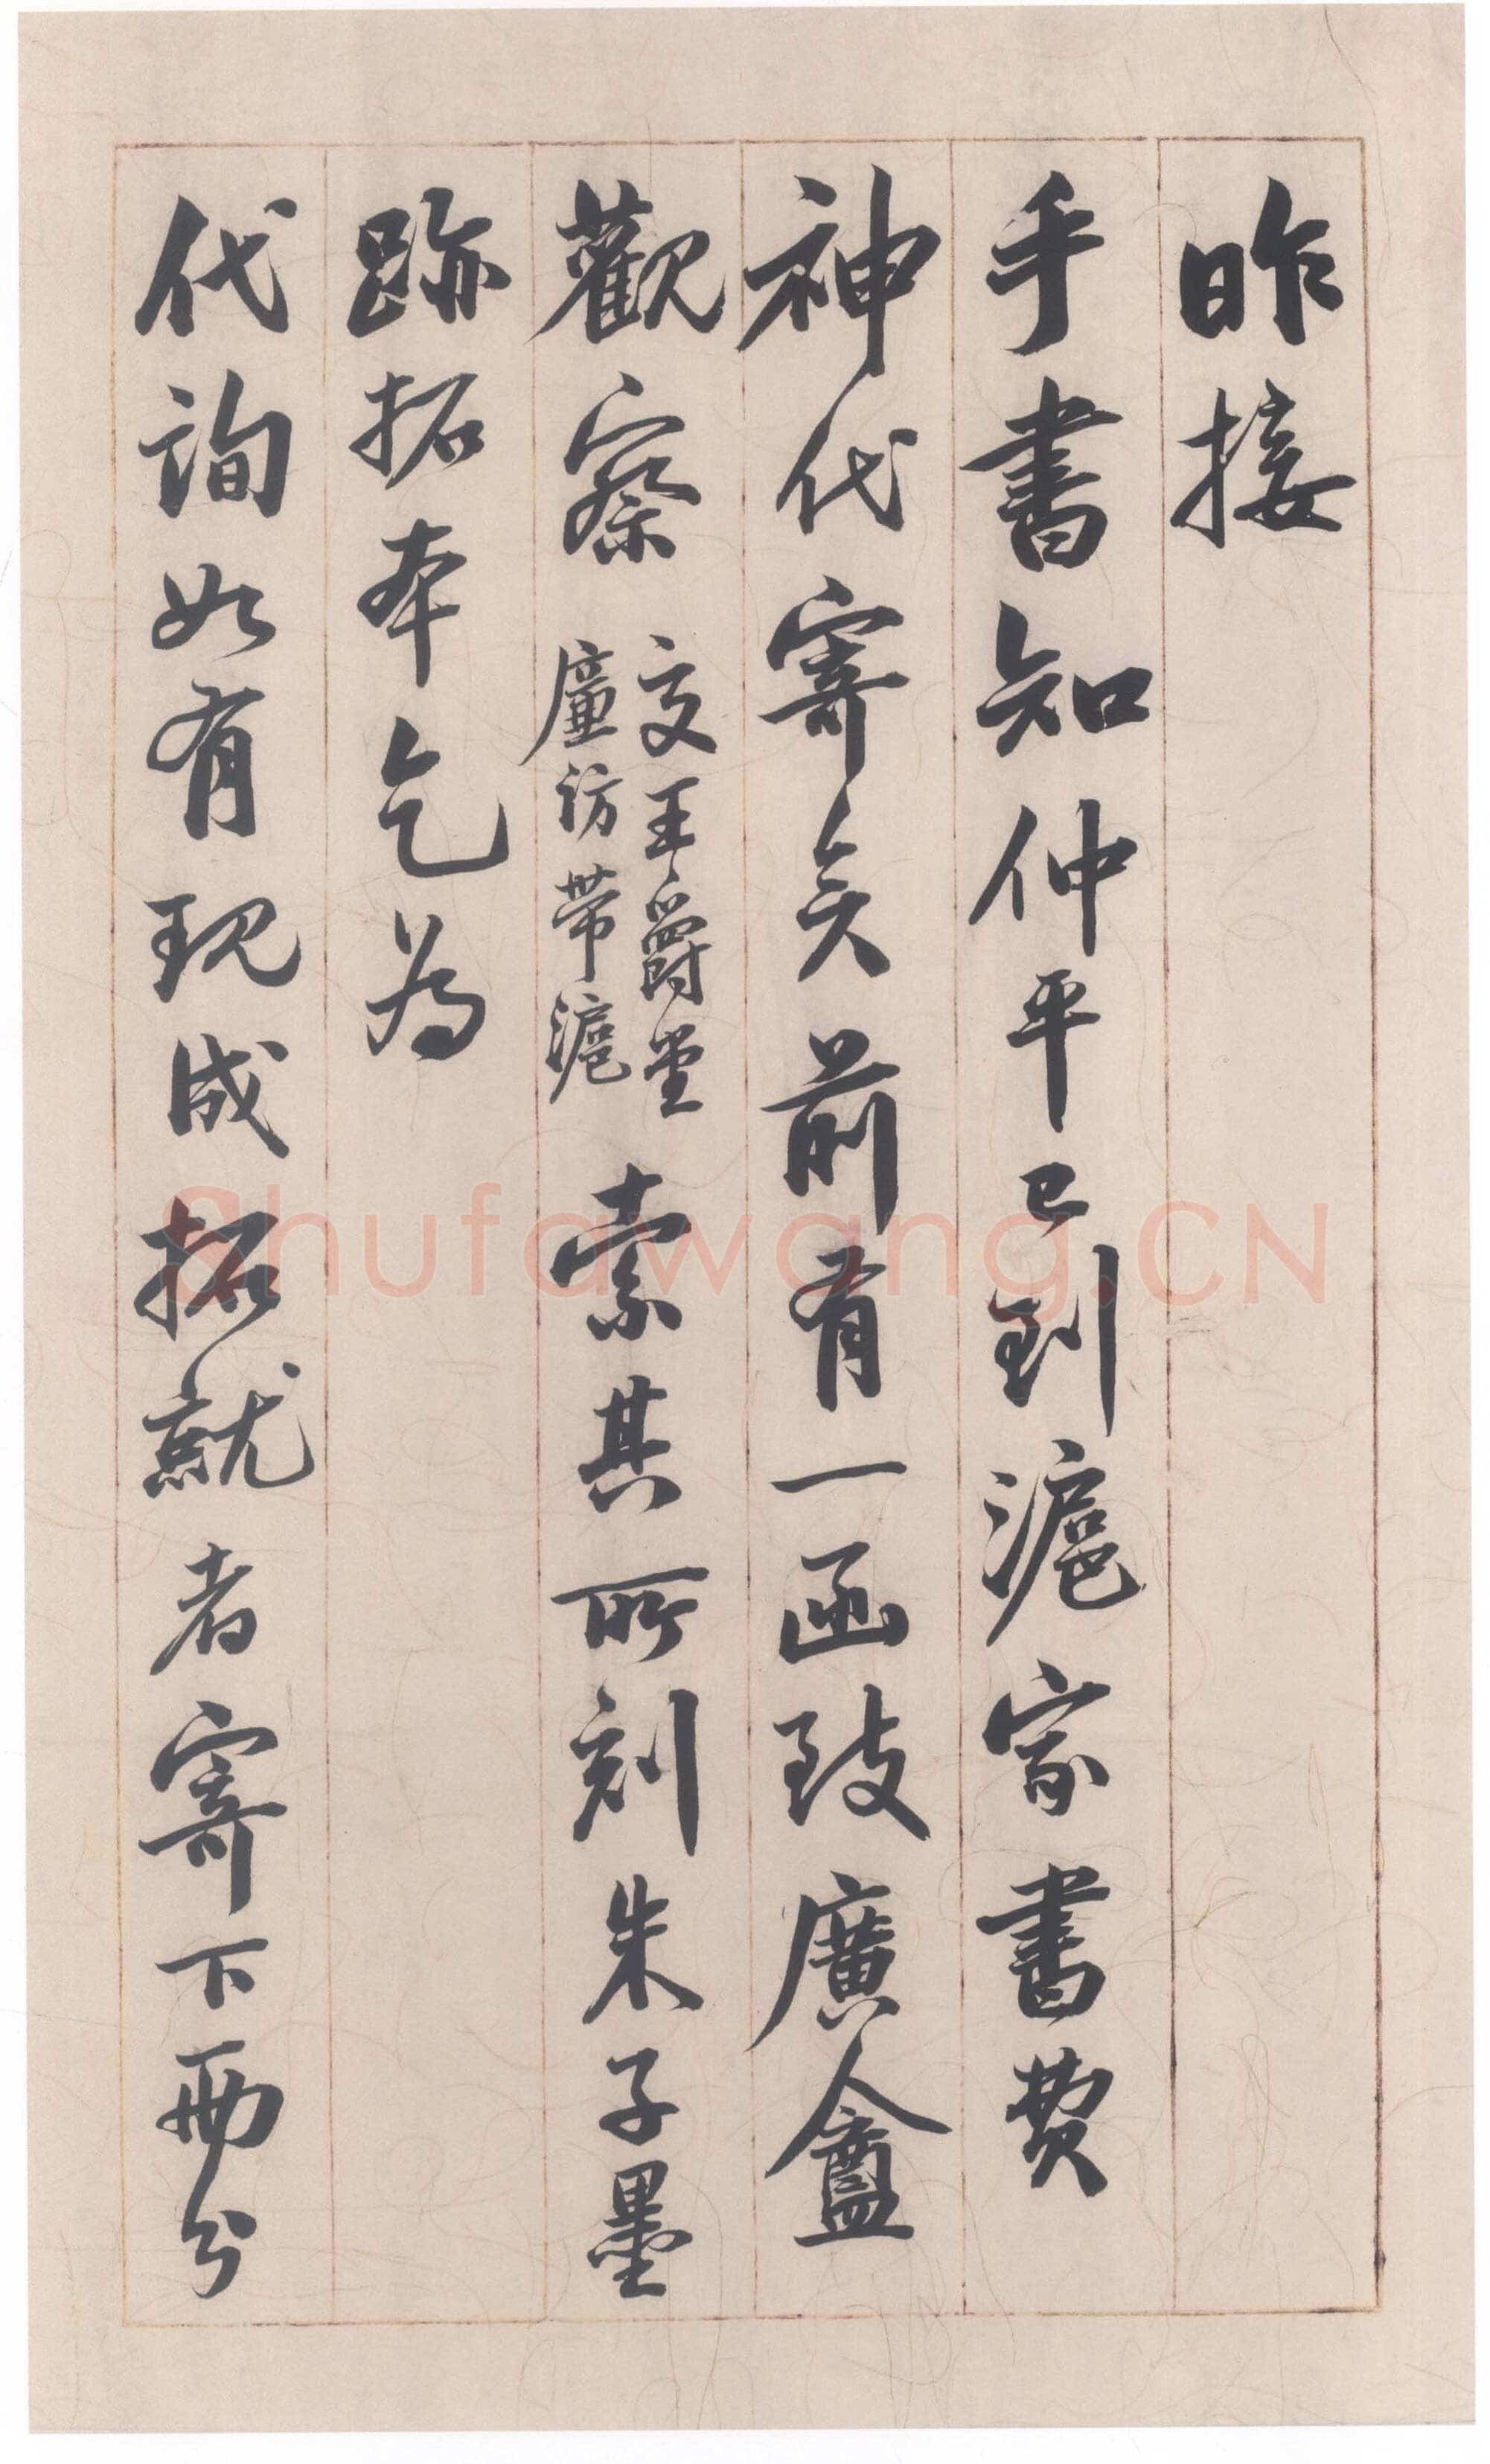 昨接
手書知仲平已到滬家書費
神代寄矣前有一函致廣盦
觀察交王爵堂廉訪帶滬索其所刻朱子墨
跡拓本乞為
代詢如有現成拓就者寄下兩分
Shufawang.CN